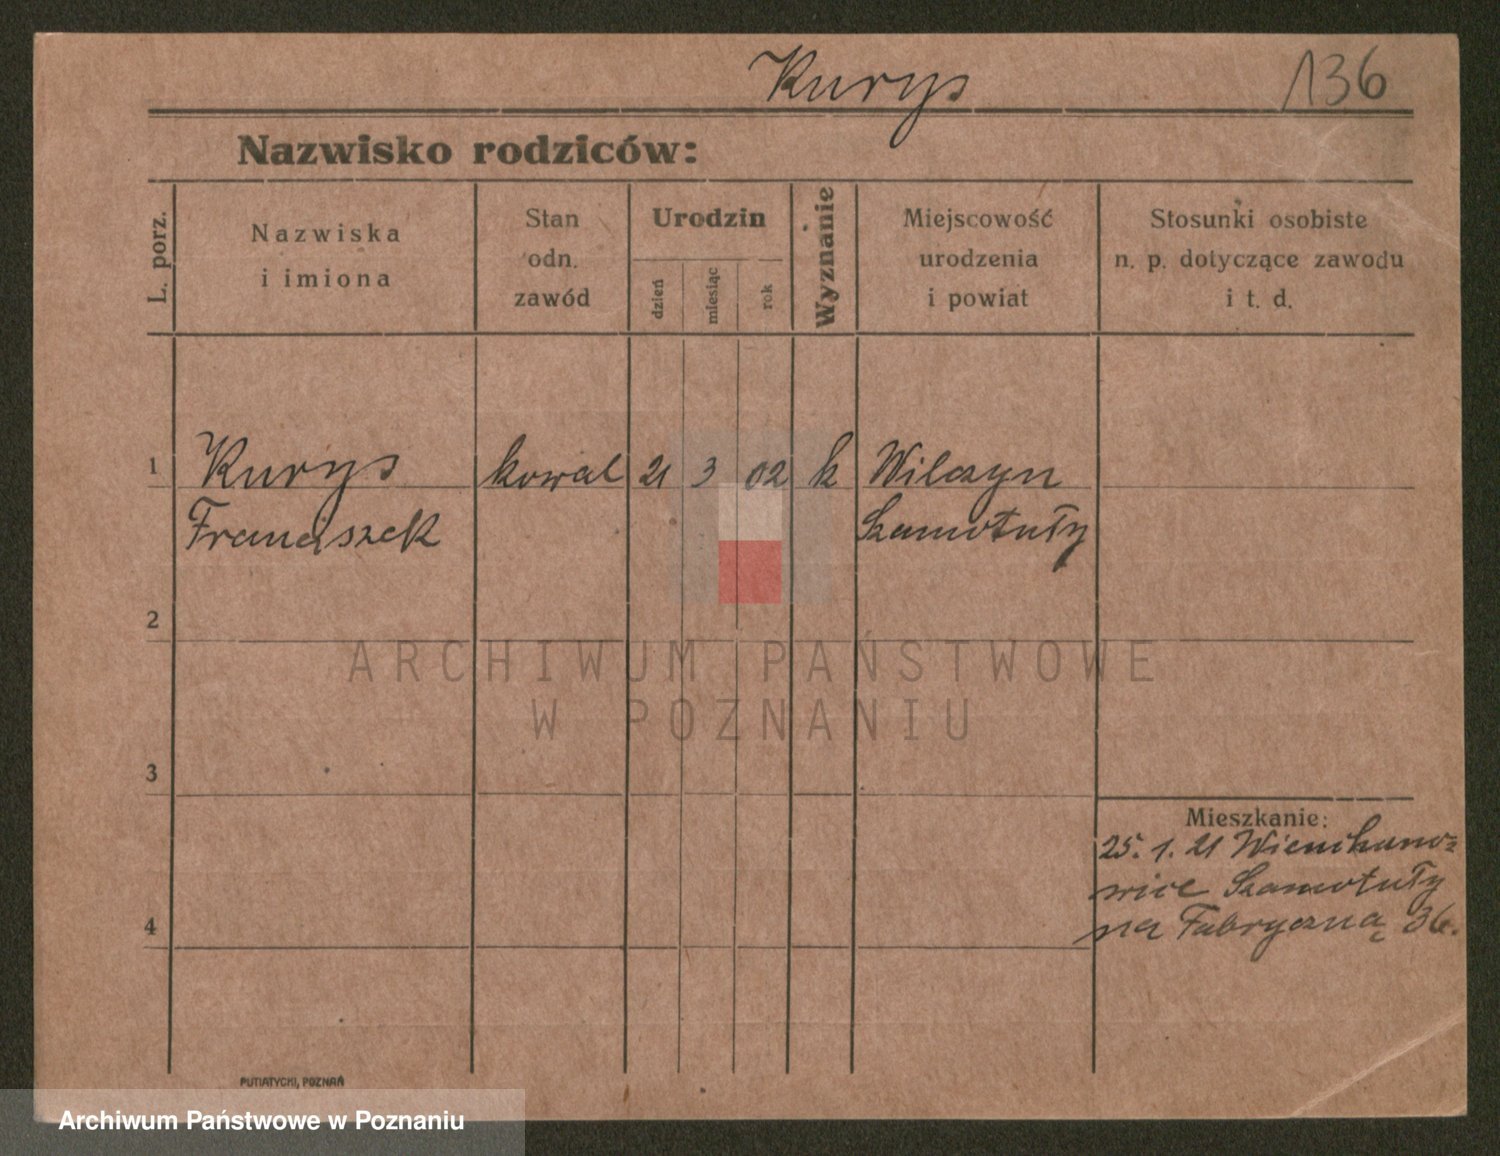 Kurys 136
Nazwisko rodziców:
L. porz.
Nazwiska
i imiona
Stan
odn.
zawód
Urodzin
dzień
miesiąc
rok
Wyznanie
Miejscowość
urodzenia
i powiat
Stosunki osobiste
n. p. dotyczące zawodu
i t. d.
1 Kurys kowal 21 3 02 k Wilczyn
Franciszek Szamotuły
2
ARCHIWUM PAŃSTWOWE
W POZNANIU
3
Mieszkanie:
25. 1. 21
Szamotuły
4
na Fabryczną 36.
PUTIATYCKI, POZNAŃ
Archiwum Państwowe w Poznaniu